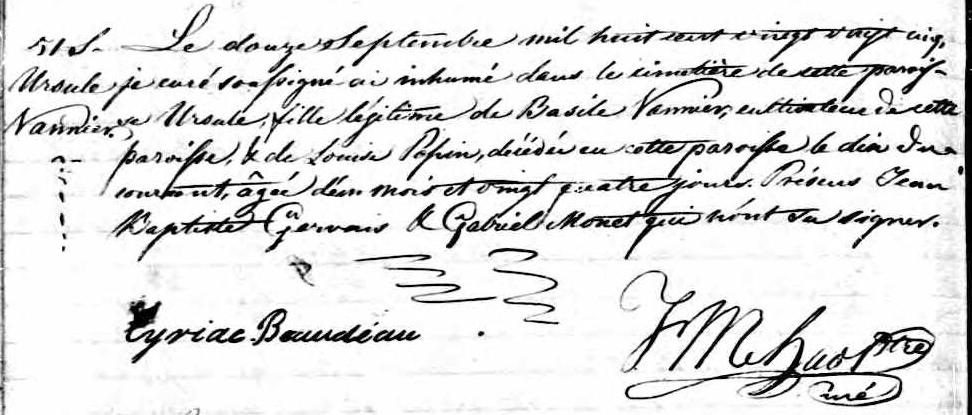 51 S- Le douze Septembre mil huit cent vingt vingt cinq,
Ursule je curé soussigné ai inhumé dans le cimetière de cette parois-
Vannier. se Ursule, fille légitime de Basile Vannier, cultivateur de cette
paroisse, & de Louise Papin, décédée en cette paroisse le dix du
courant, âgée d'un mois et vingt quatre jours. Présens Jean
Baptiste Gervais & Gabriel Monet qui n'ont su signer.
Cyriac Beaudeau
Ptre
curé